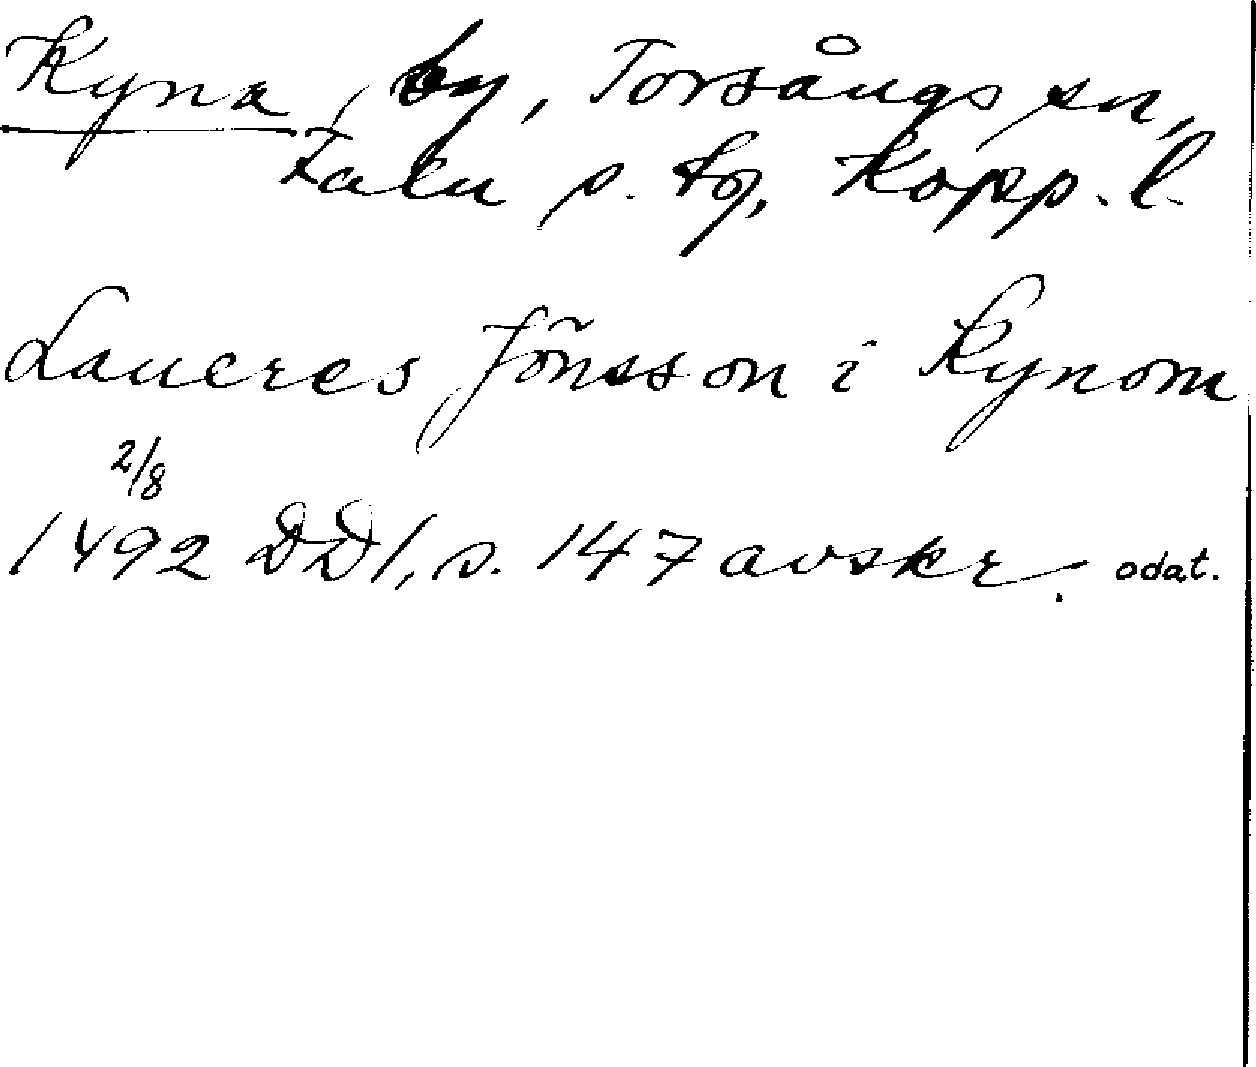 Kyna, by, Torsångs sn,
Falu s. tg, Kopp. l.
Laueres Jönsson i Kynom
2/8
1492 DD1, s. 147 avskr. odat.